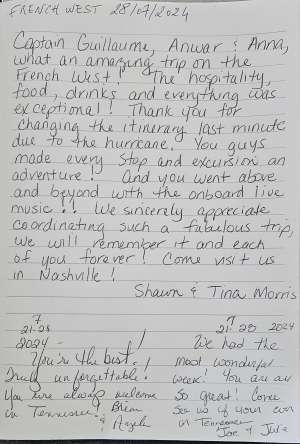 FRENCH WEST 28/07/2024
Captain Guillaume, Anwar & Anna,
what an amazing trip on the
French West! The hospitality,
food, drinks and everything was
exceptional! Thank you for
changing the itinerary last minute
due to the hurricane. You guys
made every stop and excursion an
adventure! And you went above
and beyond with the onboard live
music!! We sincerely appreciate
coordinating such a fabulous trip,
we will remember it and each
of you forever! Come visit us
in Nashville!
Shawn & Tina Morris
7
21-28
2024 -
You're the best!
Truly unforgettable!
You are always welcome
in Tennessee!
&
7
21-28 2024
We had the
most wonderful
week! You are all
so great! Come
see us if your ever
in Tennessee
Joe & Julie